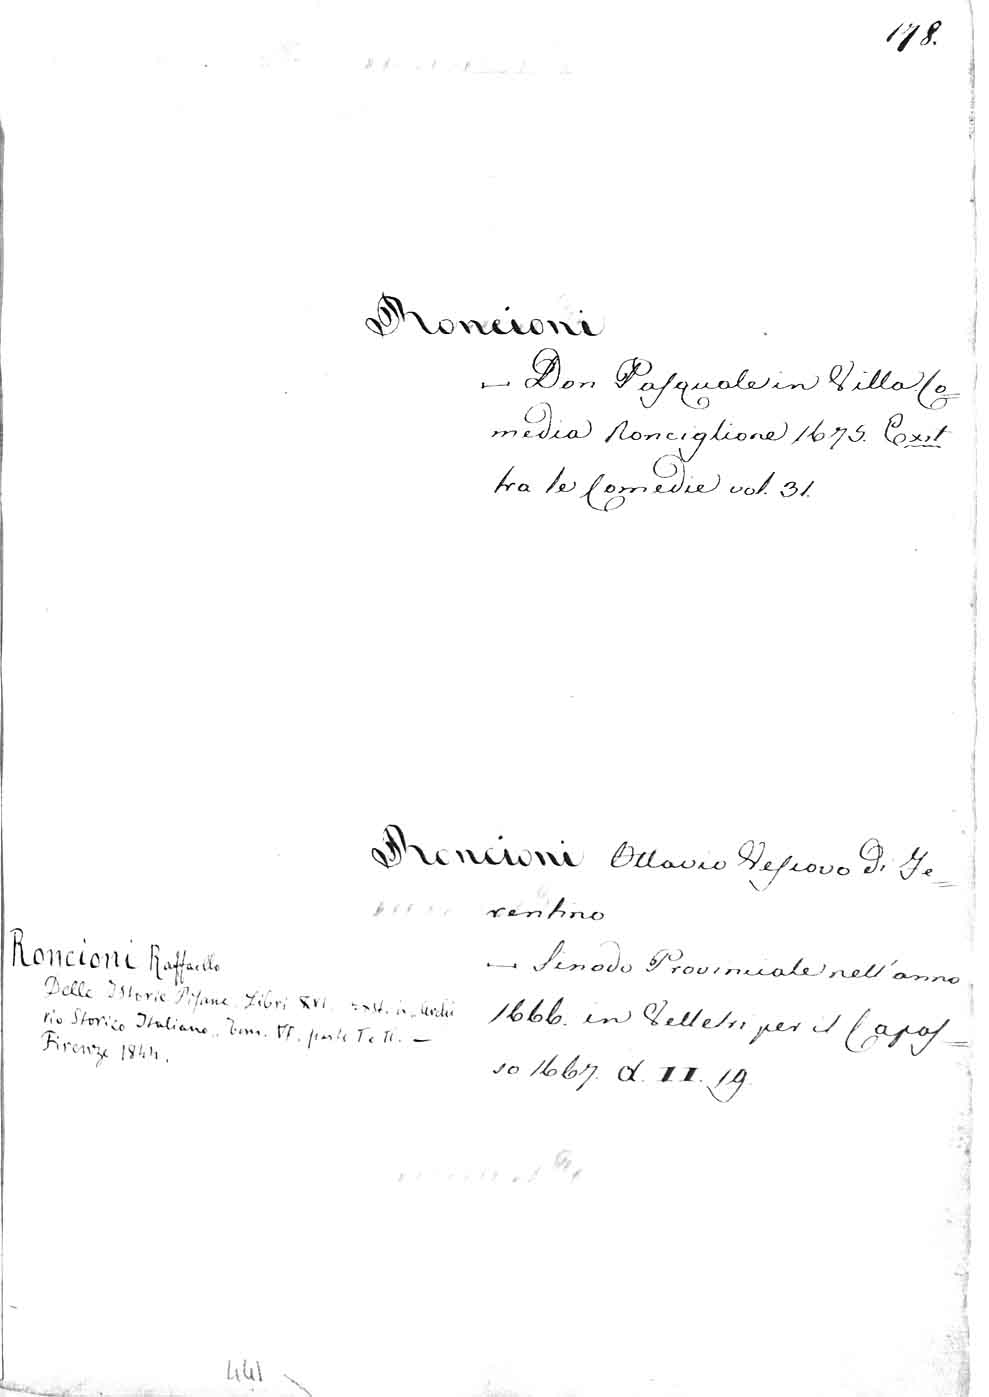 178.
Roncioni
— Don Pasquale in Villa Co=
media Ronciglione 1675. Exst
tra le Comedie vol. 31.
Roncioni Ottavio Vescovo di Fe=
rentino
— Sinodo Provinciale nell'anno
1666. in Velletri per il Capas=
so 1667. d. II. 19.
Roncioni Raffaello
Delle Istorie Pisane Libri XVI. exst. in Archi
vio Storico Italiano. Tom. VI. parte I e II. —
Firenze 1844.
441